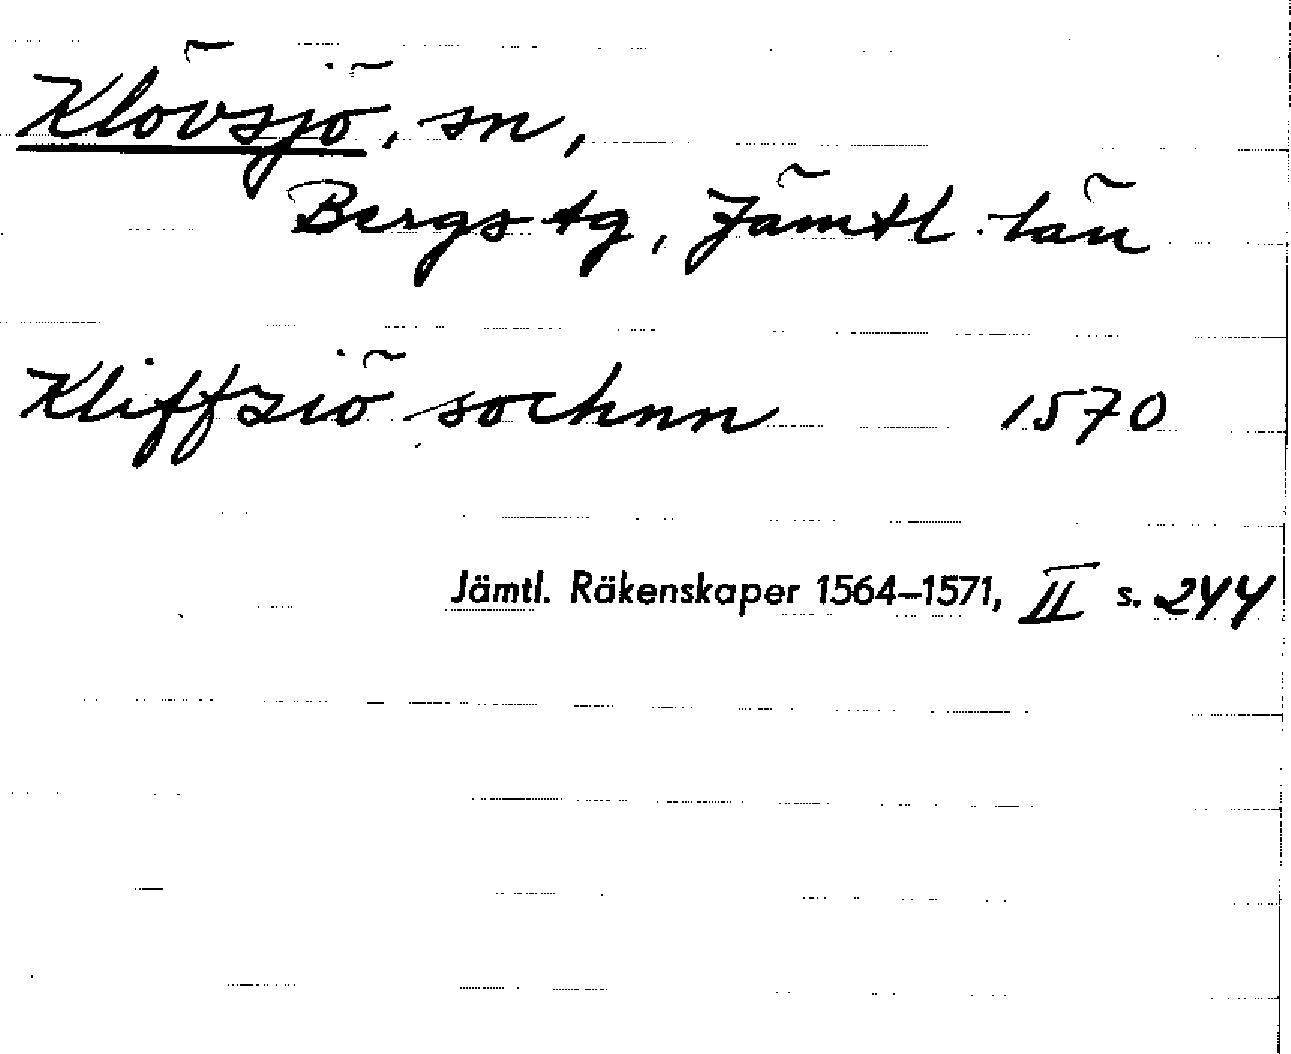 Klövsjö, sn,
Bergs tg, Jämtl. län
Kliffziö sochnn 1570
Jämtl. Räkenskaper 1564–1571, II s. 244